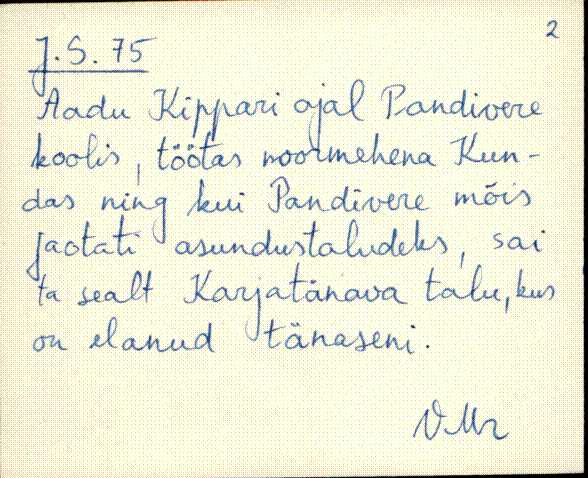 2
J.S. 75
Aadu Kippari ajal Pandivere
koolis, töötas noormehena Kun-
das ning kui Pandivere mõis
jaotati asundustaludeks, sai
ta sealt Karjatänava talu, kus
on elanud tänaseni.
VMr